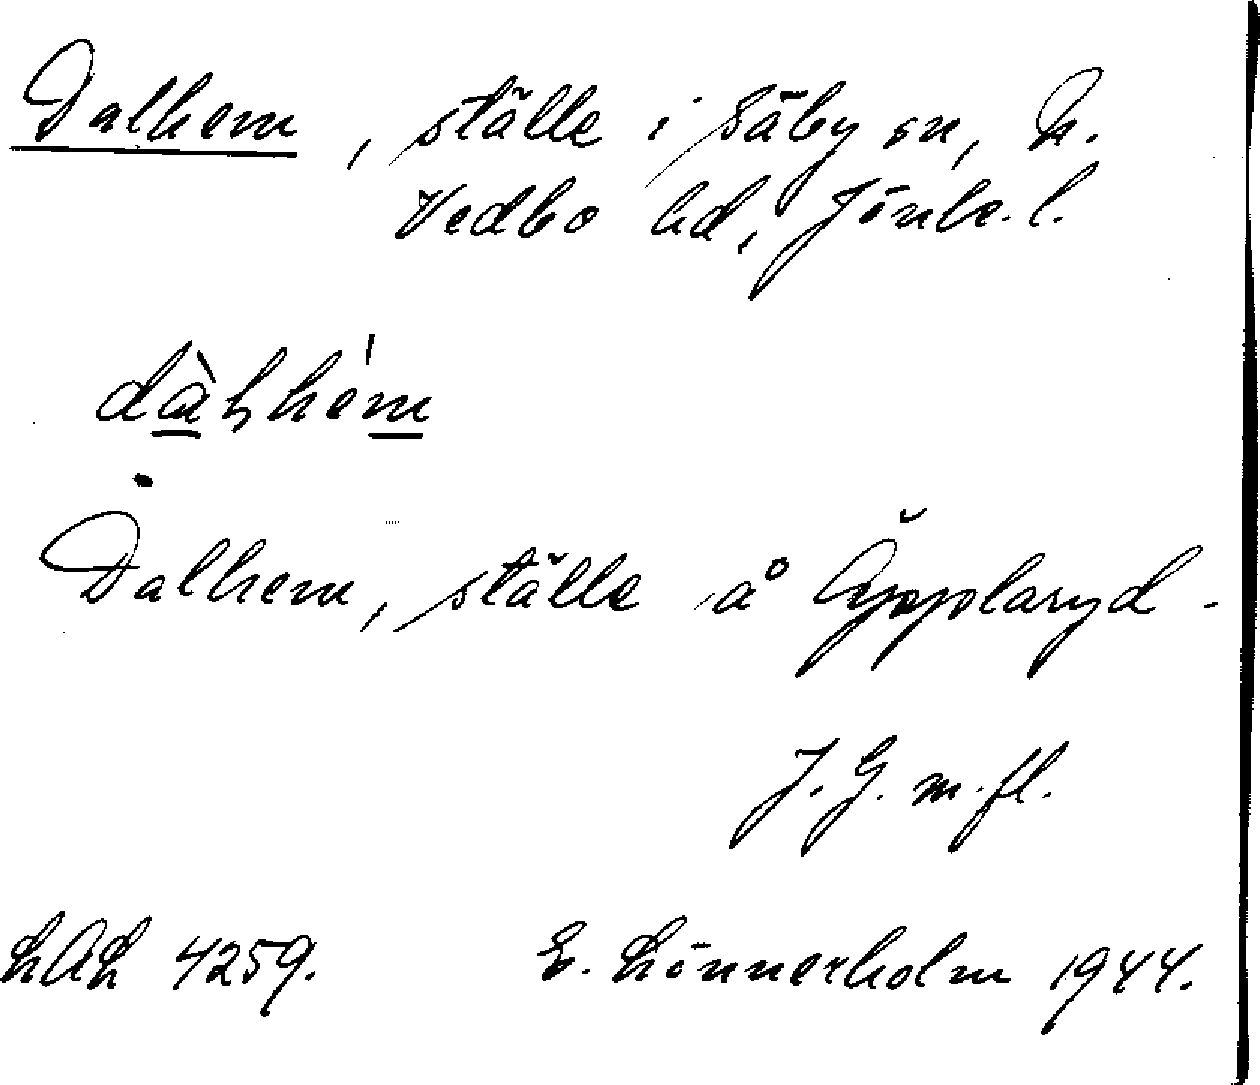 Dalhem, ställe i Säby sn, N.
Vedbo hd, Jönk. l.
dàlhém
Dalhem, ställe å Äpplaryd.
J. G. m. fl.
LAL 4259. E. Lönnerholm 1944.